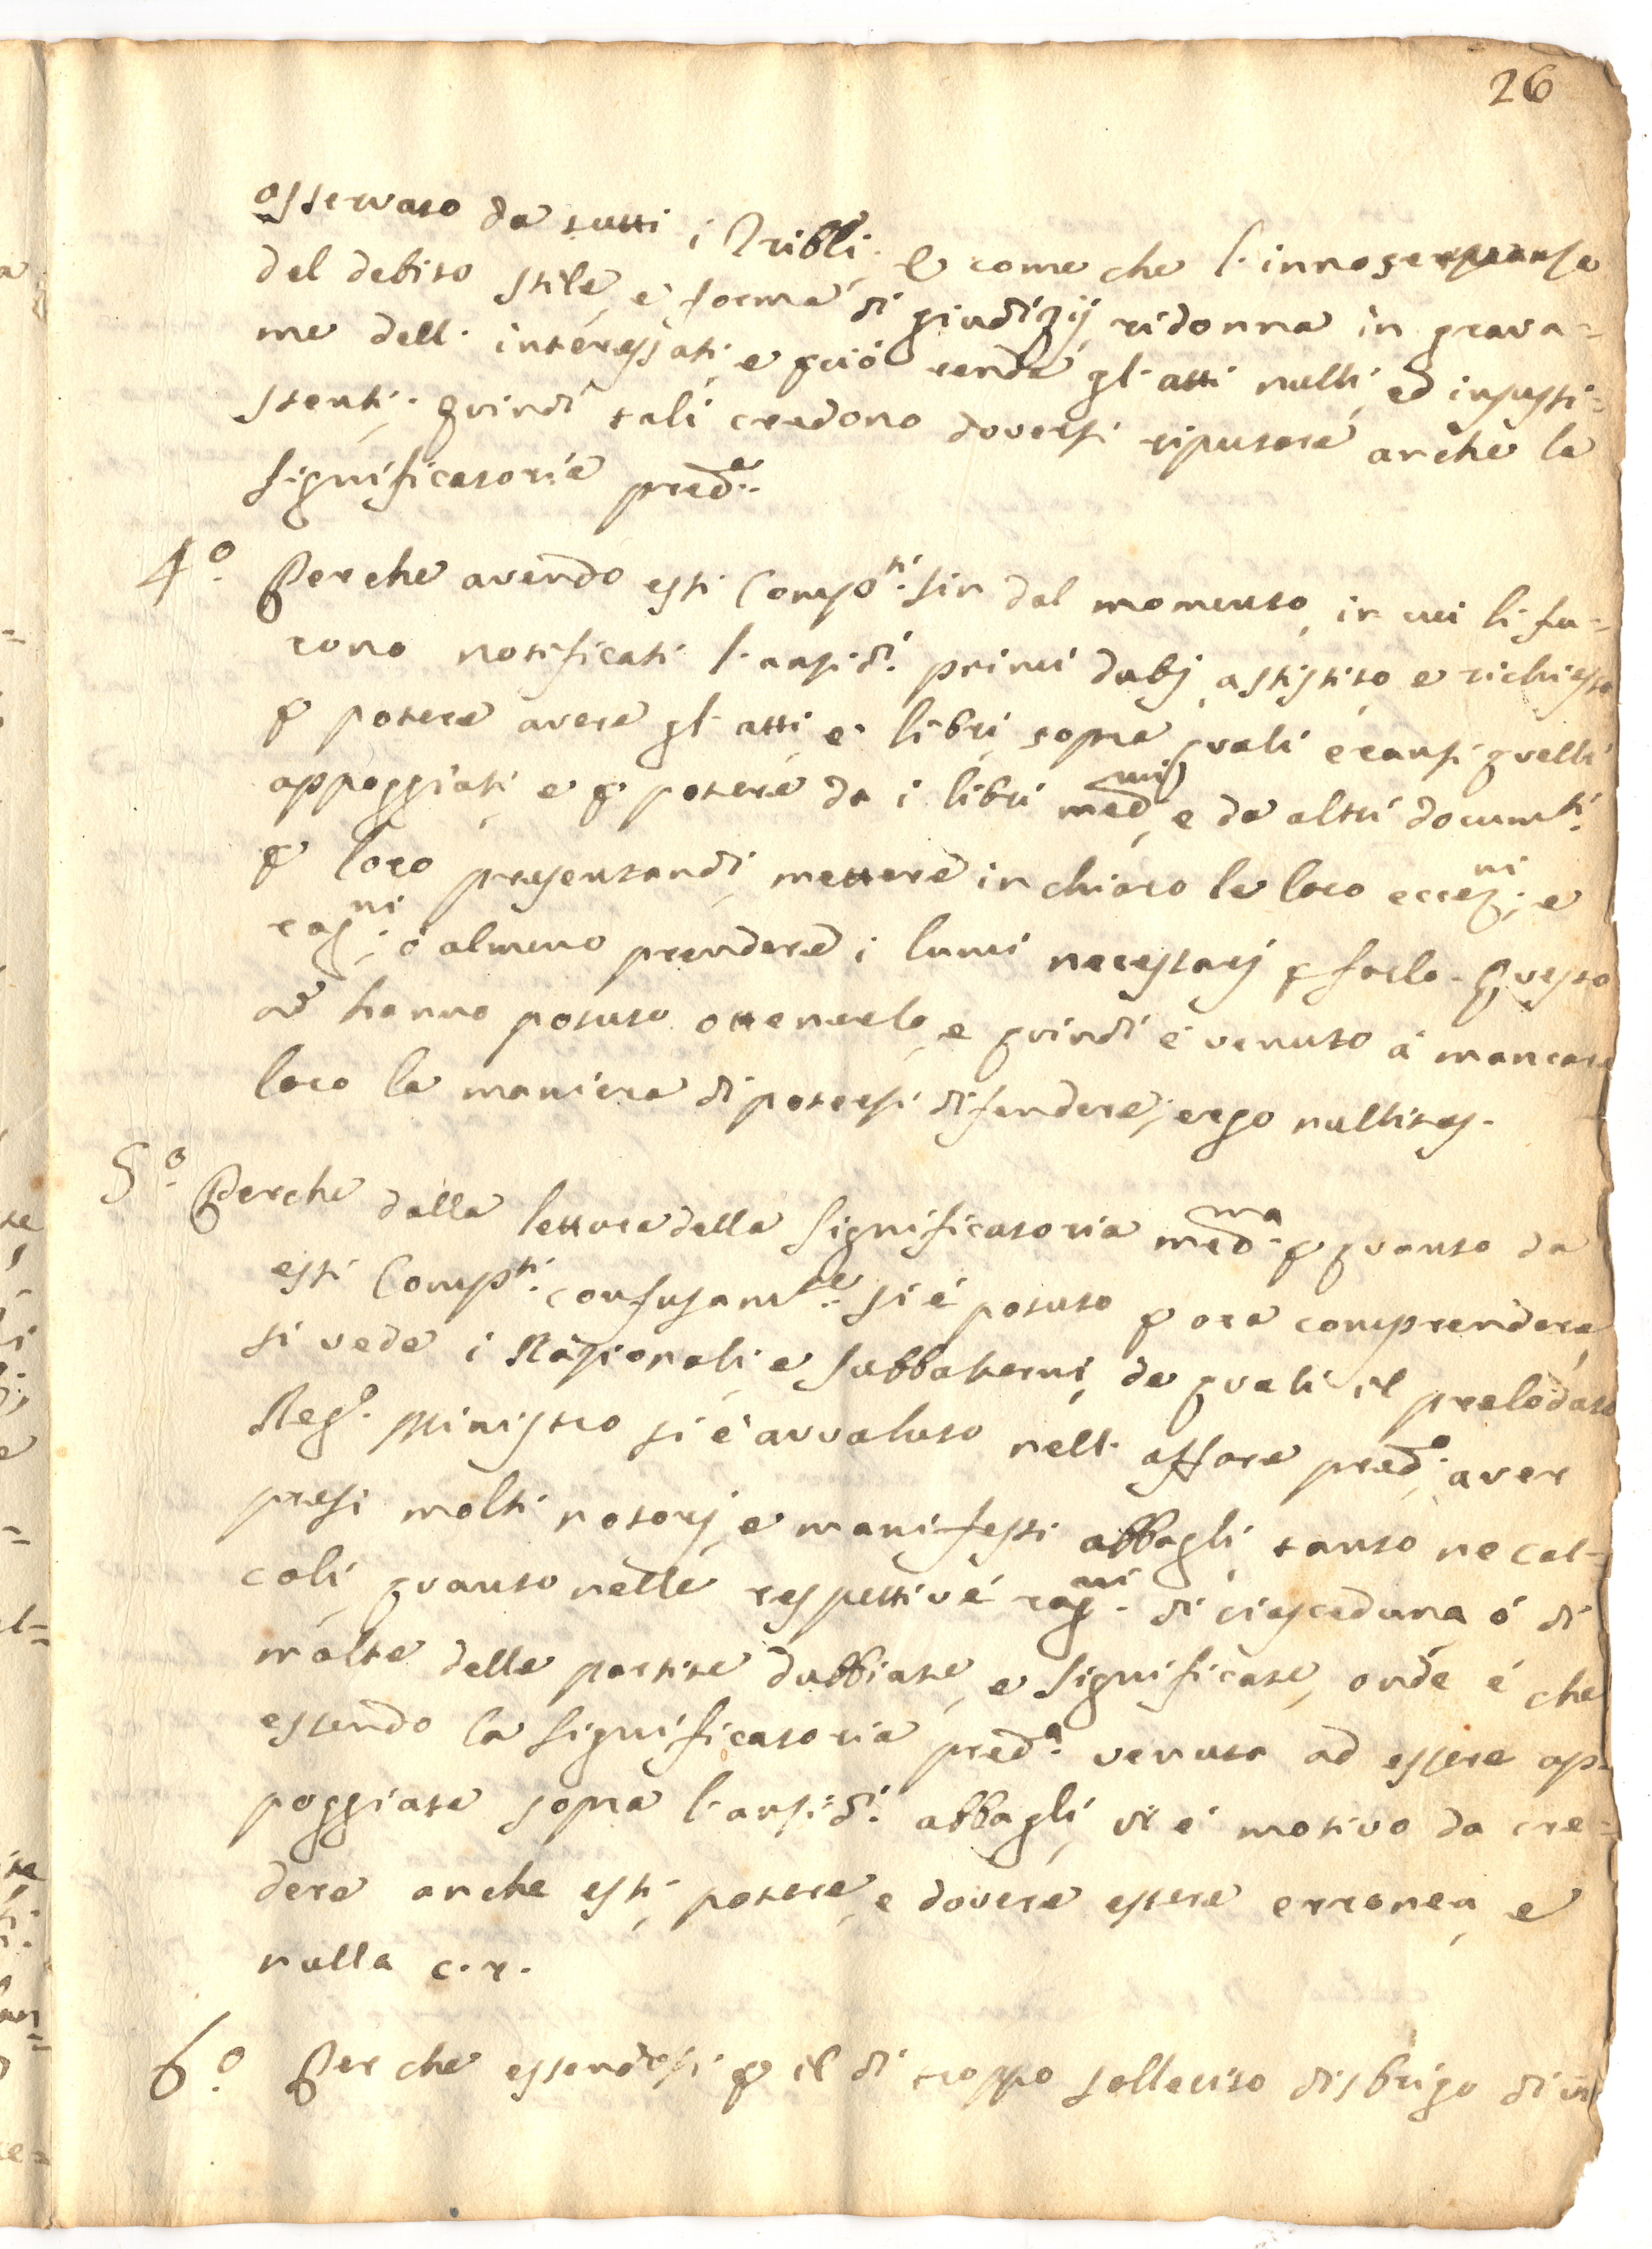 26
osservato da tutti i Tribli. E come che l'inno
del debito stile, e forma di giudizij ridonna in grava=
me dell'interessati, e pciò rende gl'atti nulli, ed insussi=
stenti; quindi tali credono doversi riputare anche la
significatoria pred.a
4.o Perche avendo essi Compo.ti sin dal momento, in cui li fu=
rono notificati l'ansid.i primi dubj, assistito e richiesto
p potere avere gl'atti, e' libri, sopra quali eransi quelli
appoggiati, e p potere da i libri med.mi, e da altri docum.ti
p loro presentandi, mettere in chiaro le loro eccez.ni, e
rag.ni; ó almeno prendere i lumi necessarj p farlo. Questo
nõ hanno potuto ottenerlo, e quindi é venuto á mancare
loro la maniera di potersi difendere; ergo nullitas.
5.o Perche dalla lettura della Significatoria med.ma p quanto da
essi Comp.ti confusam.te si é potuto p ora comprendere,
si vede i Razionali, e subbalterni, de quali il prelodato
Reg.o Ministro si é avvaluto nell'affare pred.o, aver
presi molti notorj, e manifesti abbagli, tanto ne cal=
coli, quanto nelle respettive rag.ni di ciascheduna, ó di
molte delle partite dubbiate, e significate, onde é che
essendo la significatoria pred.a venuta ad essere ap=
poggiata sopra l'ansid.i abbagli, vi é motivo da cre=
dere anche essi, potere, e dovere essere erronea, e
nulla c.r.
6.o Perche essendosi p il di troppo sollecito disbrigo di